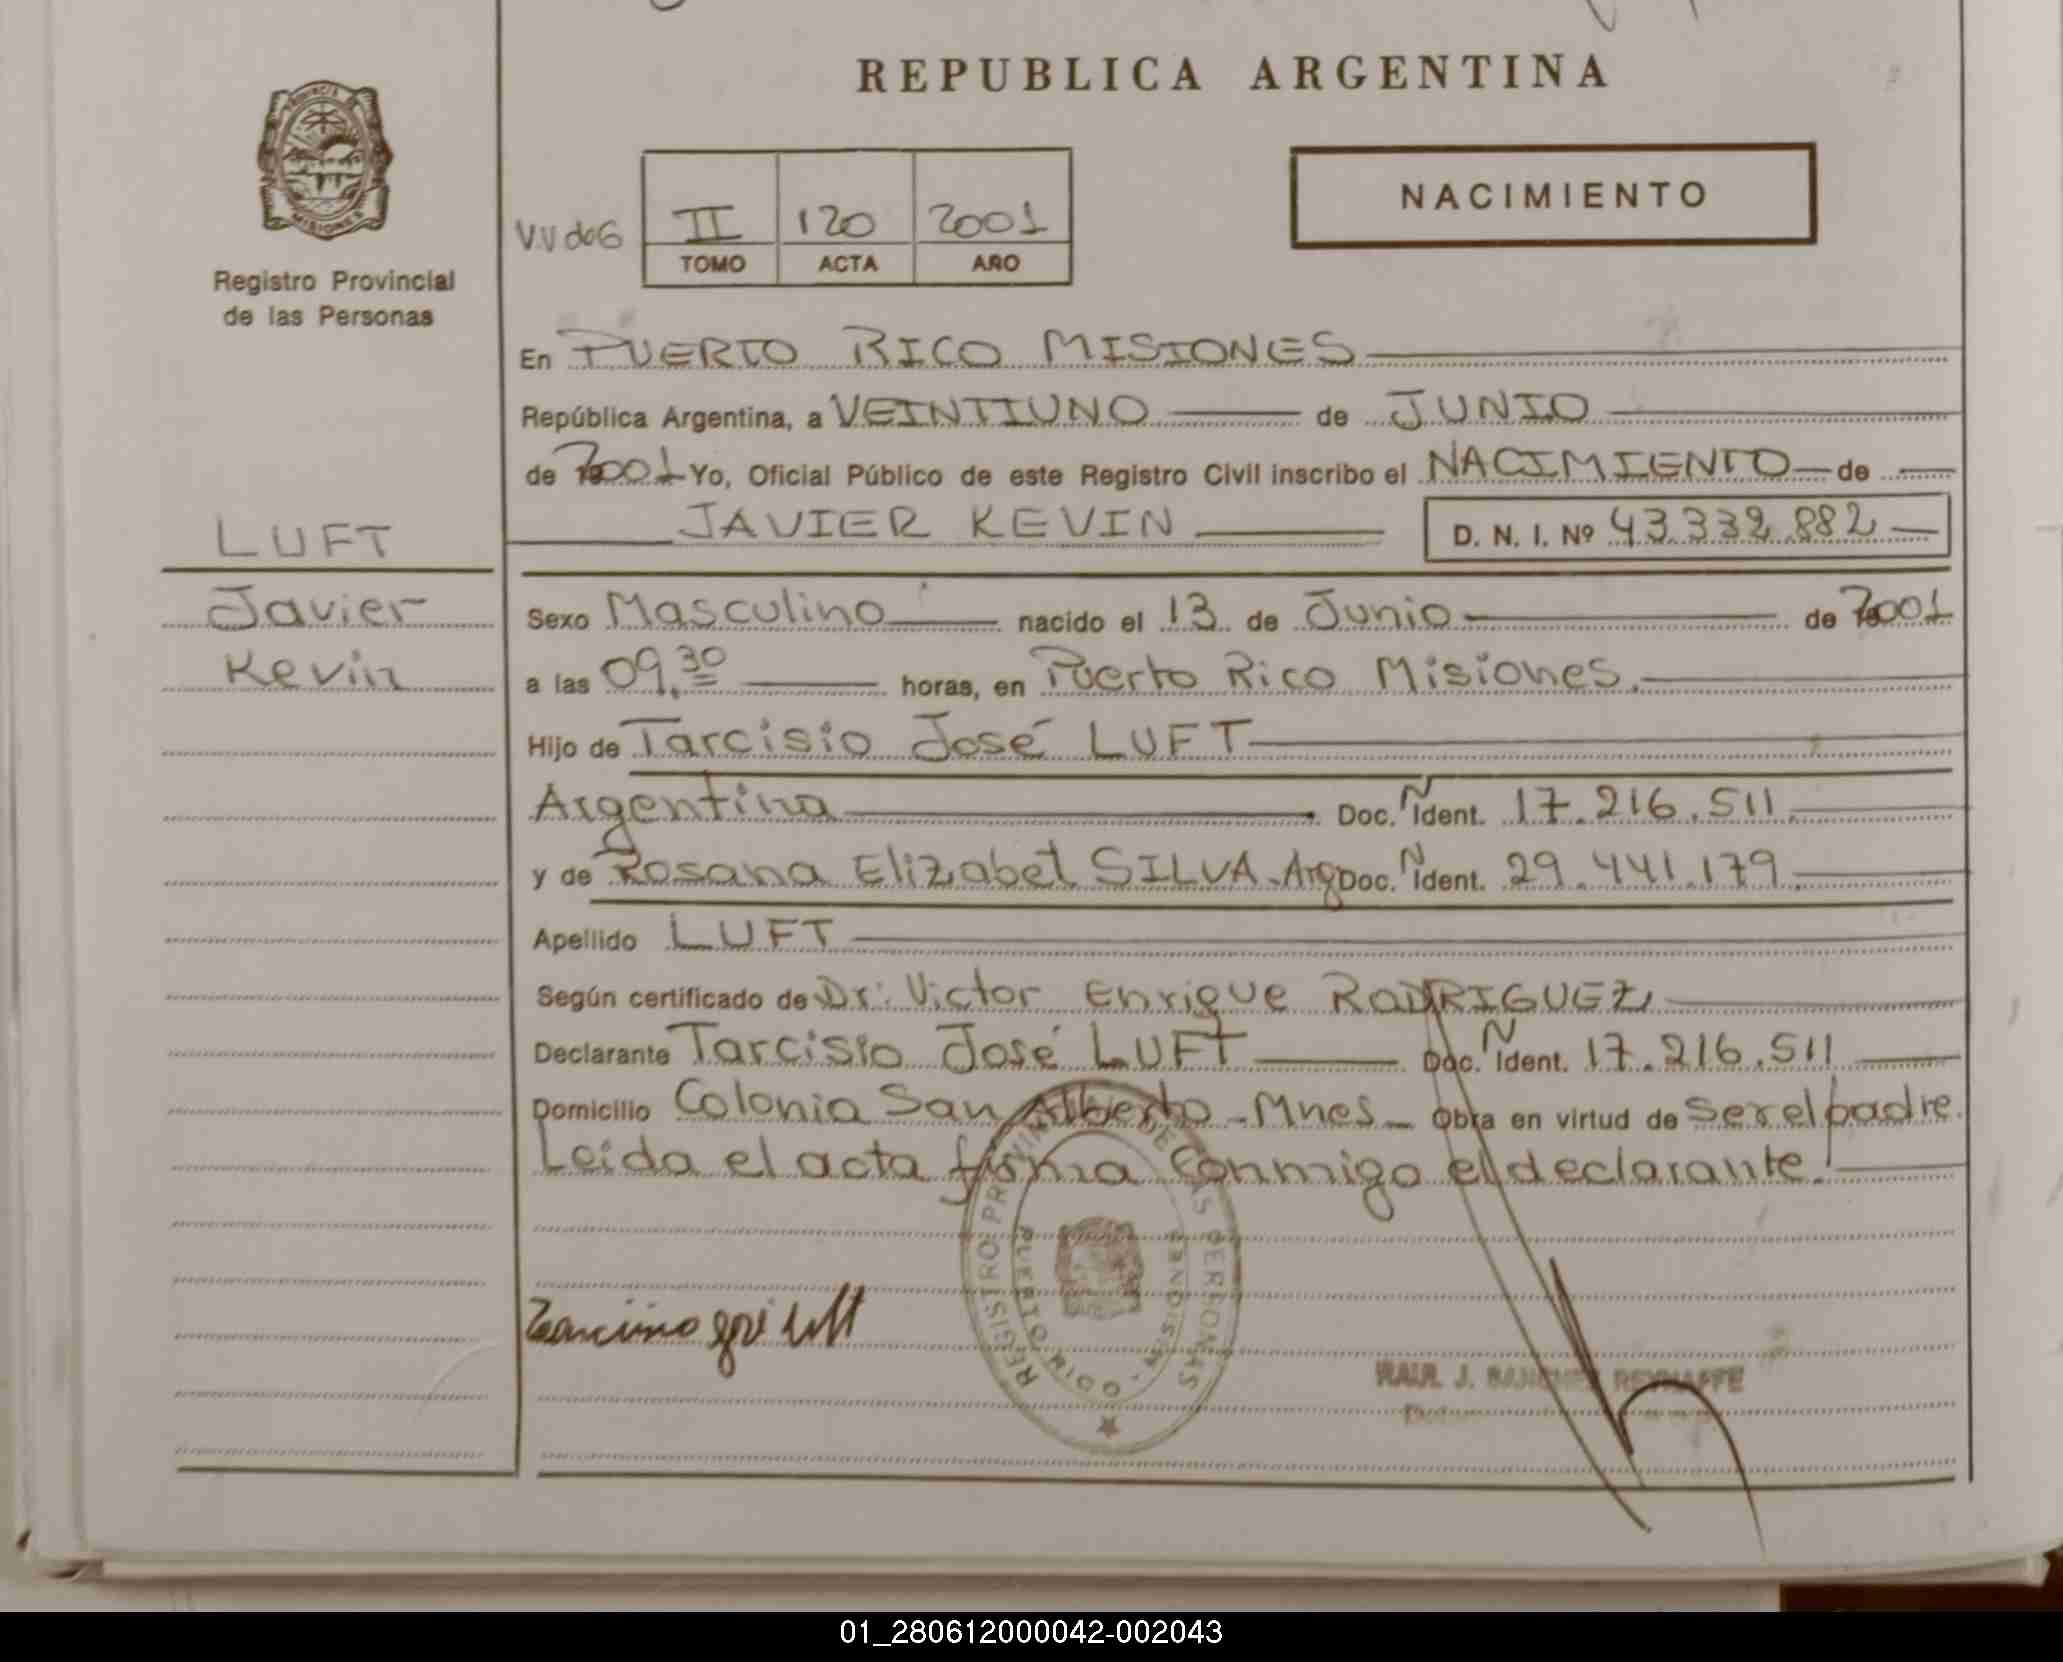 REPUBLICA ARGENTINA
PROVINCIA DE
MISIONES
Registro Provincial
de las Personas
NACIMIENTO
V.V do G
II 120 2001
TOMO ACTA AÑO
En PUERTO RICO MISIONES
República Argentina, a VEINTIUNO de JUNIO
de 2001 Yo, Oficial Público de este Registro Civil inscribo el NACIMIENTO de
JAVIER KEVIN D. N. I. Nº 43.332.882
LUFT
Javier
Kevin
Sexo Masculino nacido el 13 de Junio de 2001
a las 09,30 horas, en Puerto Rico Misiones.
Hijo de Tarcisio José LUFT
Argentina Doc. Ñ Ident. 17.216.511
y de Rosana Elizabet SILVA-Arg Doc. Ñ Ident. 29.441.179
Apellido LUFT
Según certificado de Dr: Victor Enrique RODRIGUEZ
Declarante Tarcisio José LUFT Doc. Ñ Ident. 17.216.511
Domicilio Colonia San Alberto - Mnes - Obra en virtud de ser el padre.
Leida el acta firma conmigo el declarante.
REGISTRO PROVINCIAL DE LAS PERSONAS
PUERTO RICO
MISIONES
RAUL J. SANCHEZ
01_280612000042-002043